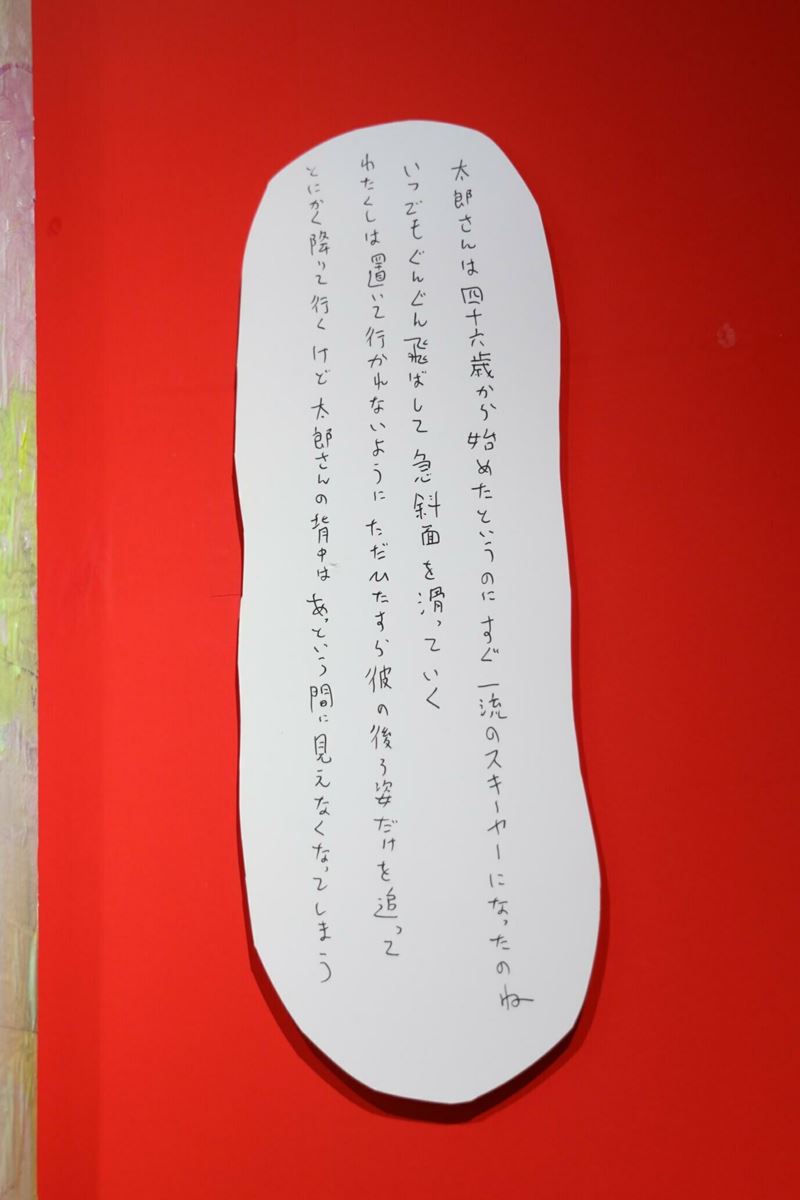 太郎さんは四十六歳から始めたというのにすぐ一流のスキーヤーになったのね
いつでもぐんぐん飛ばして急斜面を滑っていく
わたくしは置いて行かれないようにただひたすら彼の後ろ姿だけを追って
とにかく降りて行くけど太郎さんの背中はあっという間に見えなくなってしまう